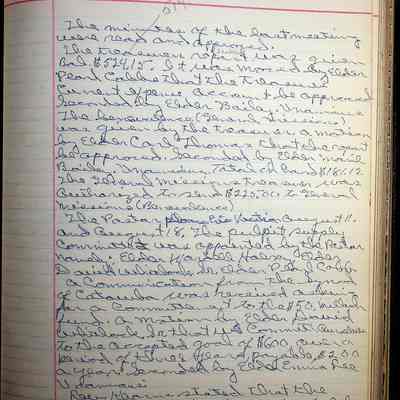 The minutes of the last meeting
were read and approved.
The treasurer report was given
Bal. $524.15. It was moved by Elder
Pearl Cobb that the treasurer
current expense account be approved
Seconded by Elder Bailey. Unanimous
The benevolence (General Missions)
was given by the treasurer a motion
by Elder Carl Thomas that the report
be approved. Seconded by Elder
Bailey. Unanimous. Total on hand $181.12
The General Missions treasurer was
authorized to send $220.00 to General
Missions (Benevolence)
The Pastor plans his Vacation August 11.
and August 18. The pulpit supply
Committee was appointed by the Pastor
named: Elder Harvell Halsey, Elder
David Whitlock Sr. Elder Pearl Cobb.
a Communication from the Synod
of Catawba was received asking
for a Commitment to the $50. million
fund. a motion by Elder David
Whitlock Sr that we Commit ourselves
to the accepted goal of $600, over a
period of three years, payable $200
a year. Seconded by Elder Emma Lee
Unanimous
stated that the